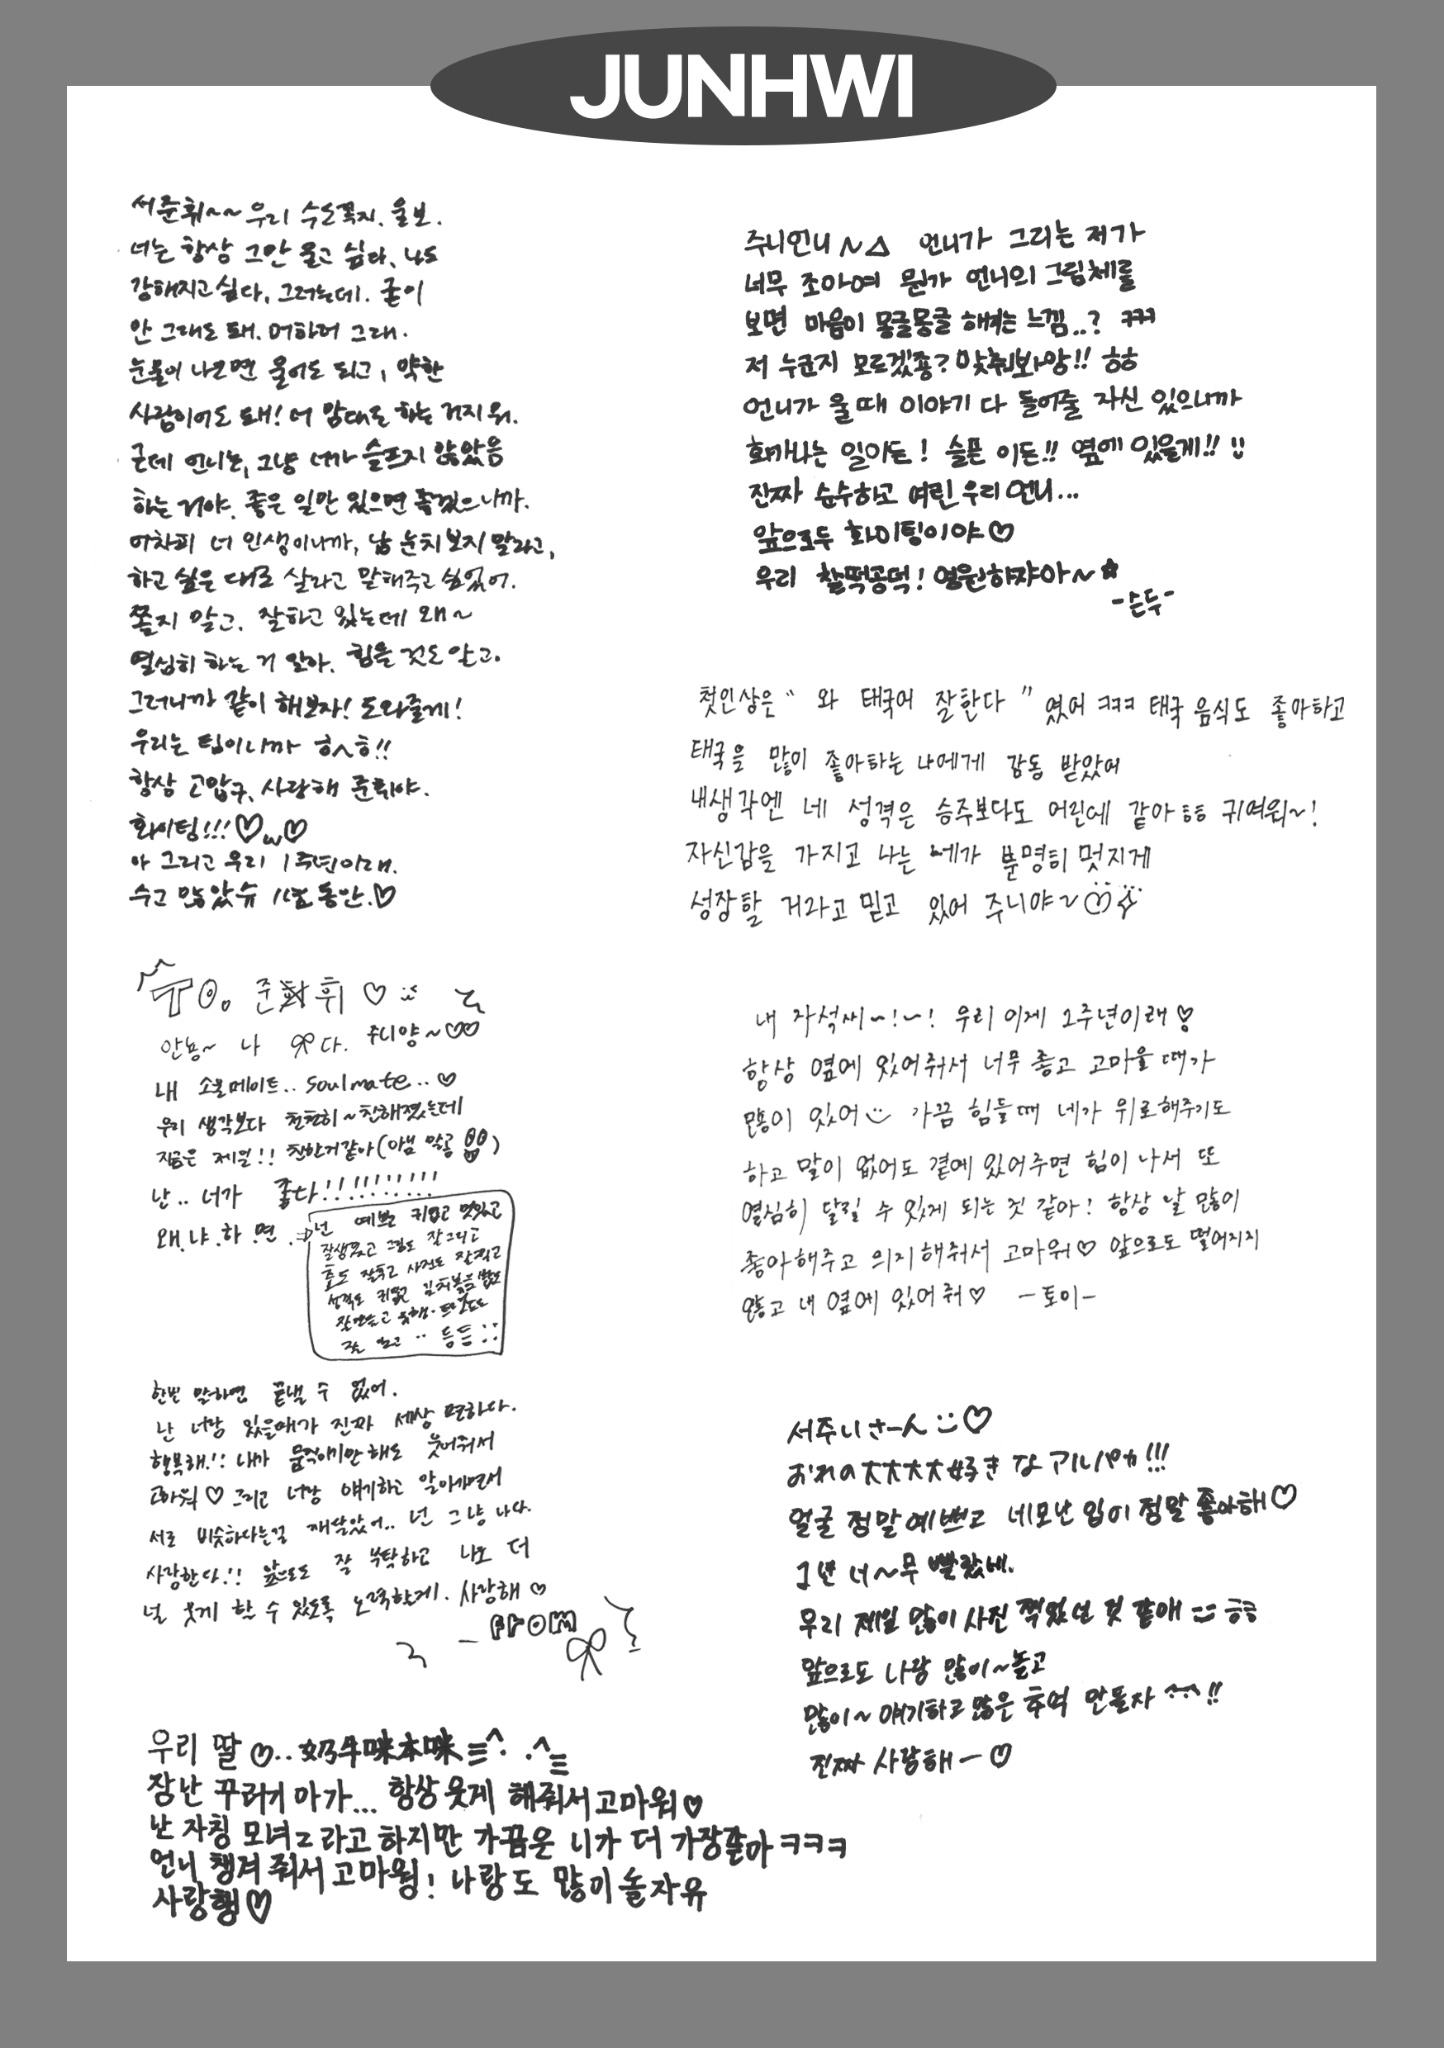 JUNHWI
서준휘~~ 우리 수도꼭지. 울보.
너는 항상 그만 울고 싶다, 나도
강해지고 싶다, 그러는데. 굳이
안 그래도 돼. 머하러 그래.
눈물이 나오면 울어도 되고, 약한
사람이어도 돼! 너 맘대로 하는 거지 뭐.
근데 언니는, 그냥 너가 슬프지 않았음
하는 거야. 좋은 일만 있으면 좋겠으니까.
어차피 너 인생이니까, 남 눈치 보지 말라고,
하고 싶은 대로 살라고 말해주고 싶었어.
쫄지 말고. 잘하고 있는데 왜~
열심히 하는 거 알아. 힘들 것도 알고.
그러니까 같이 해보자! 도와줄게!
우리는 팀이니까 ㅎㅅㅎ!!
항상 고맙구, 사랑해 준휘야.
화이팅!!!♡ω♡
아 그리고 우리 1주년이래.
수고 많았슈 1년 동안.♡
주니언니~△ 언니가 그리는 저가
너무 조아여 뭔가 언니의 그림체를
보면 마음이 몽글몽글 해져는 느낌..? ㅋㅋㅋ
저 누군지 모르겠죵? 맞춰봐앙!! ㅎㅎ
언니가 울 때 이야기 다 들어줄 자신 있으니까
화가나는 일이든! 슬픈 이든!! 옆에 있을게!! :)
진짜 순수하고 여린 우리 언니...
앞으로두 화이팅이야♡
우리 찰떡콩떡! 영원하쟈아~☆
-순두-
첫인상은 “와 태국어 잘한다” 였어 ㅋㅋㅋ 태국 음식도 좋아하고
태국을 많이 좋아하는 나에게 감동 받았어
내생각엔 네 성격은 승주보다도 어린데 같아ㅎㅎ 귀여워~!
자신감을 가지고 나는 네가 분명히 멋지게
성장할 거라고 믿고 있어 주니야~♡
To. 준휘♡
안뇽~ 나 다. 주니양~♡♡
내 소울메이트.. soulmate..♡
우리 생각보다 천천히~친해졌는데
지금은 제일!! 친한거같아(아님 말공)
난.. 너가 좋다!!!!!!!!!!
왜.냐.하.면.. 넌 예쁘고 귀엽고 멋있고
잘생겼고 그림도 잘그리고
춤도 잘추고 사진도 잘찍고
성격도 귀엽고 김치볶음밥도
등등 ::
한번 말하면 끝낼 수 없어.
난 너랑 있을때가 진짜 세상 편하다.
행복해!! 내가 움직이기만 해도 웃어줘서
고마워♡ 그리고 너랑 얘기하고 알아가면서
서로 비슷하다는걸 깨달았어.. 넌 그냥 나다.
사랑한다!! 앞으로도 잘 부탁하고 나도 더
널 웃게 할 수 있도록 노력할게. 사랑해♡
- From
내 자석씨~!~! 우리 이제 1주년이래♡
항상 옆에 있어줘서 너무 좋고 고마울 때가
많이 있어:) 가끔 힘들때 네가 위로해주기도
하고 말이 없어도 곁에 있어주면 힘이 나서 또
열심히 달릴 수 있게 되는 것 같아! 항상 날 많이
좋아해주고 의지해줘서 고마워♡ 앞으로도 떨어지지
않고 내 옆에 있어줘♡ -토이-
서주니さーん :)♡
おれの大大大大好きなアルパカ!!!
얼굴 정말 예쁘고 네모난 입이 정말 좋아해♡
1년 너~무 빨랐네.
우리 제일 많이 사진 찍었던 것 같애 :) ㅎㅎ
앞으로도 나랑 많이~놀고
많이~얘기하고 많은 추억 만들자 ^^!!
진짜 사랑해ー♡
우리 딸♡..奶牛咪本咪≡^. .^≡
장난 꾸러기 아가... 항상 웃게 해줘서 고마워♡
난 자칭 모녀즈 라고 하지만 가끔은 니가 더 가장같아 ㅋㅋㅋ
언니 챙겨 줘서 고마웡! 나랑도 많이 놀자유
사랑행♡